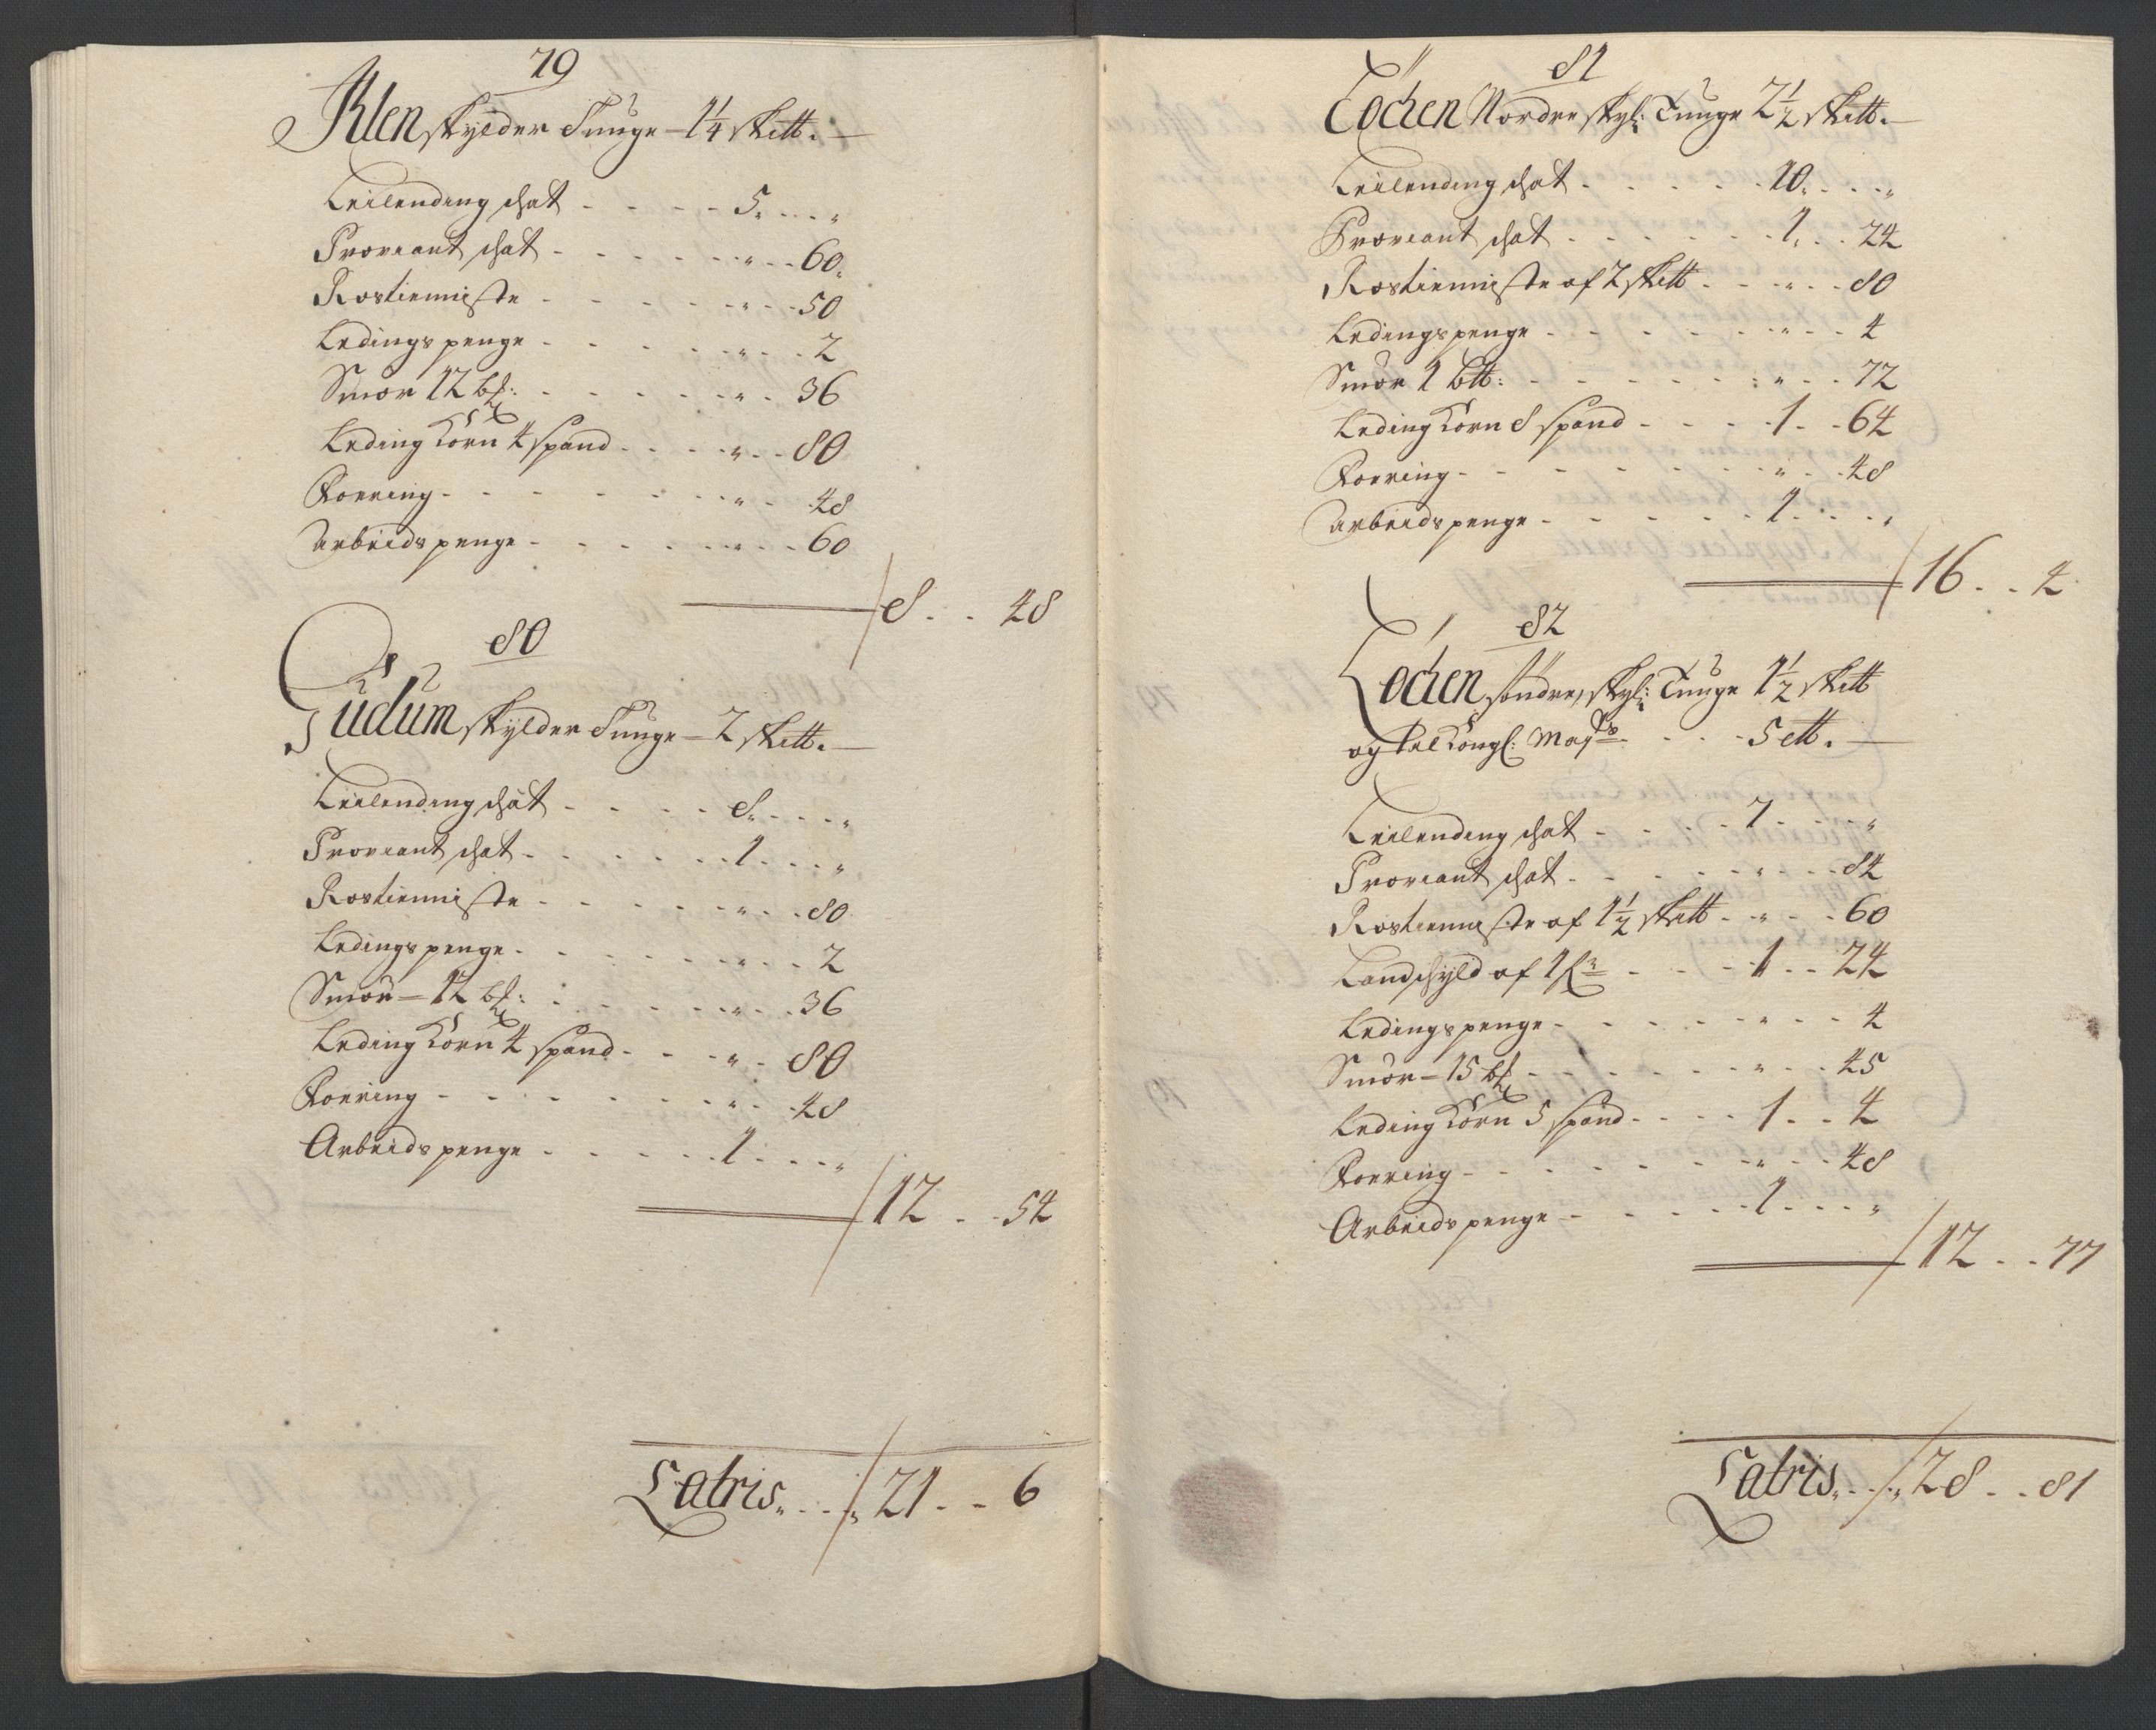 79
Alen skylder Tunge - 1 1/4 sk℔.
Leilending schat - - - - 5 - - „
Proviant schat - - - - „ - - 60
Rostienniste - - - - „ - - 50
Ledingspenge - - - - „ - - 2
Smör 12 bſ: - - - - „ - - 36
Leding Korn 4 spand - - - - „ - - 80
Foering - - - - „ - - 48
Arbeidspenge - - - - „ - - 60
8 - - 48
80
Gudum skylder Tunge - 2 sk℔.
Leilending schat - - - - 8 - - „
Proviant schat - - - - 1 - - „
Rostienniste - - - - „ - - 80
Ledingspenge - - - - „ - - 2
Smör - 12 bſ: - - - - „ - - 36
Leding Korn 4 spand - - - - „ - - 80
Foering - - - - „ - - 48
Arbeidspenge - - - - 1 - - „
12 - - 54
Latris - - - 21 - - 6
81
Löchen Nordre skyl: Tunge 2 1/2 sk℔.
Leilending schat - - - - 10 - - „
Proviant schat - - - - 1 - - 24
Rostienniste af 2 sk℔ - - „ - - 80
Ledingspenge - - - - „ - - 4
Smör 1 b℔: - - - - „ - - 72
Leding Korn 8 spand - - - - 1 - - 64
Foering - - - - „ - - 48
Arbeidspenge - - - - 1 - - „
16 - - 4
82
Löchen söndre, skyl: Tunge 1 1/2 sk℔
og til Kongl: Mayts - - - 5 ℔.
Leilending schat - - - - 7 - - „
Proviant schat - - - - „ - - 84
Rostienniste af 1 1/2 sk℔ - - „ - - 60
Landschyld af 1 - - - 1 - - 24
Ledingspenge - - - - „ - - 4
Smör - 15 bſ - - - - „ - - 45
Leding Korn 5 spand - - - - 1 - - 4
Foering - - - - „ - - 48
Arbeidspenge - - - - 1 - - „
12 - - 77
Latris - - - 28 - - 81